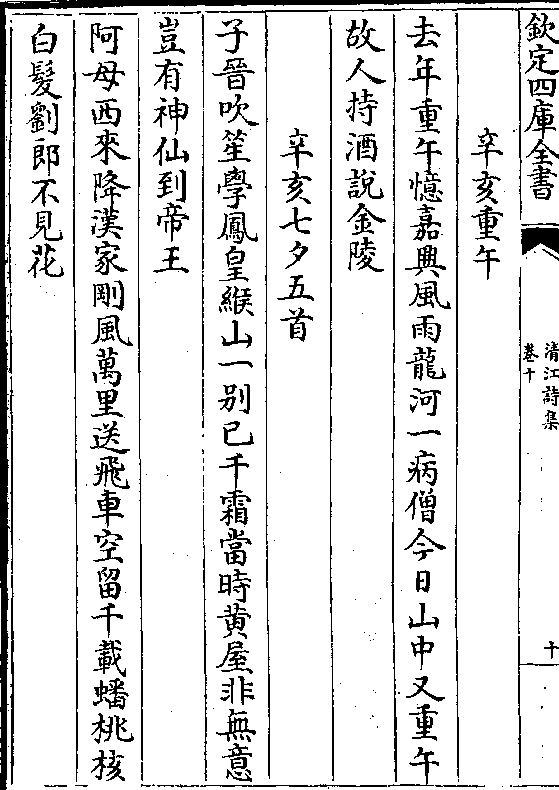 欽定四庫全書
清江詩集
卷十
十
辛亥重午
去年重午憶嘉興風雨龍河一病僧今日山中又重午
故人持酒說金陵
辛亥七夕五首
子晉吹笙學鳳皇緱山一别已千霜當時黄屋非無意
豈有神仙到帝王
阿母西來降漢家剛風萬里送飛車空留千載蟠桃核
白髮劉郎不見花